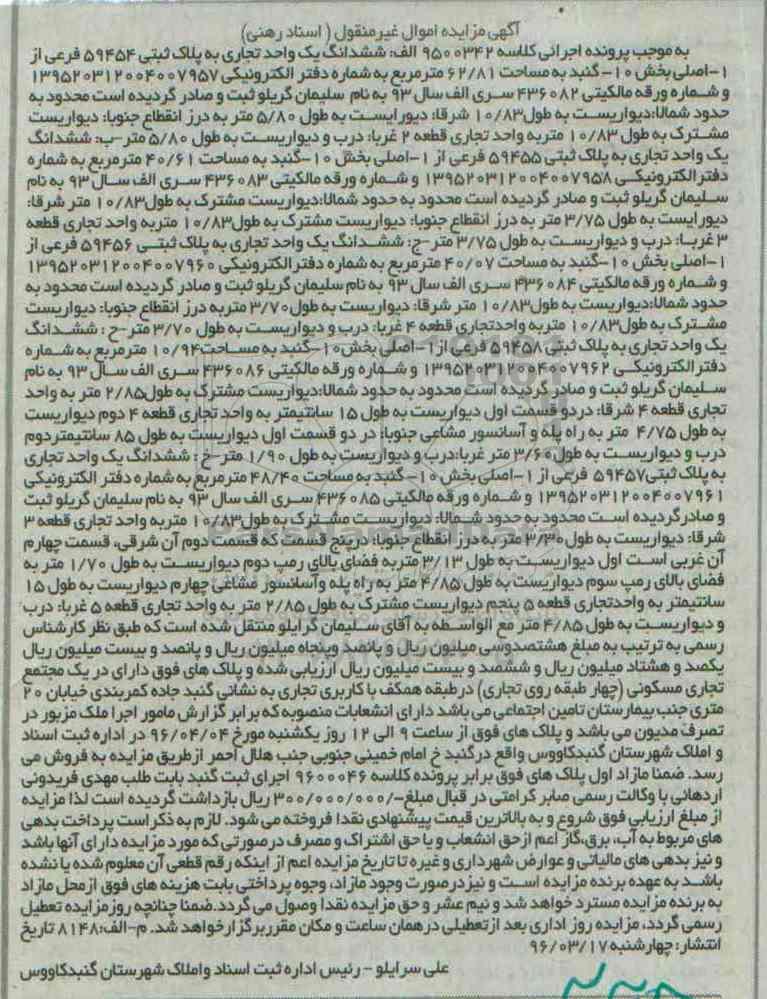 آگهی مزایده اموال غیرمنقول ( اسناد رهنی)
به موجب پرونده اجرائی کلاسه ۹۵۰۰۳۴۲ الف: ششدانگ یک واحد تجاری به پلاک ثبتی ۵۹۴۵۴ فرعی از
۱-اصلی بخش ۱۰-گنبد به مساحت ۶۲/۸۱ مترمربع به شماره دفتر الکترونیکی ۱۳۹۵۲۰۳۱۲۰۰۴۰۰۷۹۵۷
و شماره ورقه مالکیتی ۴۳۶۰۸۲ سری الف سال ۹۳ به نام سلیمان گریلو ثبت و صادر گردیده است محدود به
حدود شمالا:دیواریست به طول۱۰/۸۳ شرقا: دیورایست به طول ۵/۸۰ متر به درز انقطاع جنوبا: دیواریست
مشترک به طول ۱۰/۸۳ متربه واحد تجاری قطعه ۲ غربا: درب و دیواریست به طول ۵/۸۰ متر-ب: ششدانگ
یک واحد تجاری به پلاک ثبتی ۵۹۴۵۵ فرعی از ۱-اصلی بخش ۱۰-گنبد به مساحت ۴۰/۶۱ مترمربع به شماره
دفتر الکترونیکی ۱۳۹۵۲۰۳۱۲۰۰۴۰۰۷۹۵۸ و شماره ورقه مالکیتی ۴۳۶۰۸۳ سری الف سال ۹۳ به نام
سلیمان گریلو ثبت و صادر گردیده است محدود به حدود شمالا:دیواریست مشترک به طول۱۰/۸۳ متر شرقا:
دیورایست به طول ۳/۷۵ متر به درز انقطاع جنوبا: دیواریست مشترک به طول۱۰/۸۳ متربه واحد تجاری قطعه
۳ غربا: درب و دیواریست به طول ۳/۷۵ متر-ج: ششدانگ یک واحد تجاری به پلاک ثبتی ۵۹۴۵۶ فرعی از
۱-اصلی بخش ۱۰-گنبد به مساحت ۴۰/۰۷ مترمربع به شماره دفتر الکترونیکی ۱۳۹۵۲۰۳۱۲۰۰۴۰۰۷۹۶۰
و شماره ورقه مالکیتی ۴۳۶۰۸۴ سری الف سال ۹۳ به نام سلیمان گریلو ثبت و صادر گردیده است محدود به
حدود شمالا:دیواریست به طول۱۰/۸۳ متر شرقا: دیواریست به طول۳/۷۰ متربه درز انقطاع جنوبا: دیواریست
مشترک به طول۱۰/۸۳ متربه واحدتجاری قطعه ۴ غربا: درب و دیواریست به طول ۳/۷۰ متر-ح : ششدانگ
یک واحد تجاری به پلاک ثبتی ۵۹۴۵۸ فرعی از۱-اصلی بخش۱۰-گنبد به مساحت۱۰/۹۴ مترمربع به شماره
دفتر الکترونیکی ۱۳۹۵۲۰۳۱۲۰۰۴۰۰۷۹۶۲ و شماره ورقه مالکیتی ۴۳۶۰۸۶ سری الف سال ۹۳ به نام
سلیمان گریلو ثبت و صادر گردیده است محدود به حدود شمالا:دیواریست مشترک به طول۲/۸۵ متر به واحد
تجاری قطعه ۴ شرقا: دردو قسمت اول دیواریست به طول ۱۵ سانتیمتر به واحد تجاری قطعه ۴ دوم دیواریست
به طول ۴/۷۵ متر به راه پله و آسانسور مشاعی جنوبا: در دو قسمت اول دیواریست به طول ۸۵ سانتیمتردوم
درب و دیواریست به طول۳/۶۰ متر غربا:درب و دیواریست به طول ۱/۹۰ متر-خ : ششدانگ یک واحد تجاری
به پلاک ثبتی۵۹۴۵۷ فرعی از ۱-اصلی بخش ۱۰-گنبد به مساحت ۴۸/۴۰ مترمربع به شماره دفتر الکترونیکی
۱۳۹۵۲۰۳۱۲۰۰۴۰۰۷۹۶۱ و شماره ورقه مالکیتی ۴۳۶۰۸۵ سری الف سال ۹۳ به نام سلیمان گریلو ثبت
و صادرگردیده است محدود به حدود شمالا: دیواریست مشترک به طول۱۰/۸۳ متربه واحد تجاری قطعه ۳
شرقا: دیواریست به طول۳/۳۰ متر به درز انقطاع جنوبا: درپنج قسمت که قسمت دوم آن شرقی، قسمت چهارم
آن غربی است اول دیواریست به طول ۳/۱۳ متربه فضای بالای رمپ دوم دیواریست به طول ۱/۷۰ متر به
فضای بالای رمپ سوم دیواریست به طول۴/۸۵ متر به راه پله وآسانسور مشاعی چهارم دیواریست به طول ۱۵
سانتیمتر به واحدتجاری قطعه ۵ پنجم دیواریست مشترک به طول ۲/۸۵ متر به واحد تجاری قطعه ۵ غربا: درب
و دیواریست به طول ۴/۸۵ متر مع الواسطه به آقای سلیمان گرایلو منتقل شده است که طبق نظر کارشناس
رسمی به ترتیب به مبلغ هشتصدوسی میلیون ریال و پانصد وپنجاه میلیون ریال و پانصد و بیست میلیون ریال
یکصد و هشتاد میلیون ریال و ششصد و بیست میلیون ریال ارزیابی شده و پلاک های فوق دارای در یک مجتمع
تجاری مسکونی (چهار طبقه روی تجاری) درطبقه همکف با کاربری تجاری به نشانی گنبد جاده کمربندی خیابان ۲۰
متری جنب بیمارستان تامین اجتماعی می باشد دارای انشعابات منصوبه که برابر گزارش مامور اجرا ملک مزبور در
تصرف مدیون می باشد و پلاک های فوق از ساعت ۹ الی ۱۲ روز یکشنبه مورخ ۹۶/۰۴/۰۴ در اداره ثبت اسناد
و املاک شهرستان گنبدکاووس واقع درگنبد خ امام خمینی جنوبی جنب هلال احمر ازطریق مزایده به فروش می
رسد. ضمنا مازاد اول پلاک های فوق برابر پرونده کلاسه ۹۶۰۰۰۴۶ اجرای ثبت گنبد بابت طلب مهدی فریدونی
اردهانی با وکالت رسمی صابر کرامتی در قبال مبلغ-/۳۰۰/۰۰۰/۰۰۰ ریال بازداشت گردیده است لذا مزایده
از مبلغ ارزیابی فوق شروع و به بالاترین قیمت پیشنهادی نقدا فروخته می شود. لازم به ذکر است پرداخت بدهی
های مربوط به آب، برق،گاز اعم ازحق انشعاب و یا حق اشتراک و مصرف درصورتی که مورد مزایده دارای آنها باشد
و نیز بدهی های مالیاتی و عوارض شهرداری و غیره تا تاریخ مزایده اعم از اینکه رقم قطعی آن معلوم شده یا نشده
باشد به عهده برنده مزایده است و نیزدرصورت وجود مازاد، وجوه پرداختی بابت هزینه های فوق ازمحل مازاد
به برنده مزایده مسترد خواهد شد و نیم عشر و حق مزایده نقدا وصول می گردد.ضمنا چنانچه روزمزایده تعطیل
رسمی گردد، مزایده روز اداری بعد ازتعطیلی درهمان ساعت و مکان مقرربرگزارخواهد شد. م-الف:۸۱۴۸ تاریخ
انتشار: چهارشنبه ۹۶/۰۳/۱۷
علی سرایلو - رئیس اداره ثبت اسناد واملاک شهرستان گنبدکاووس